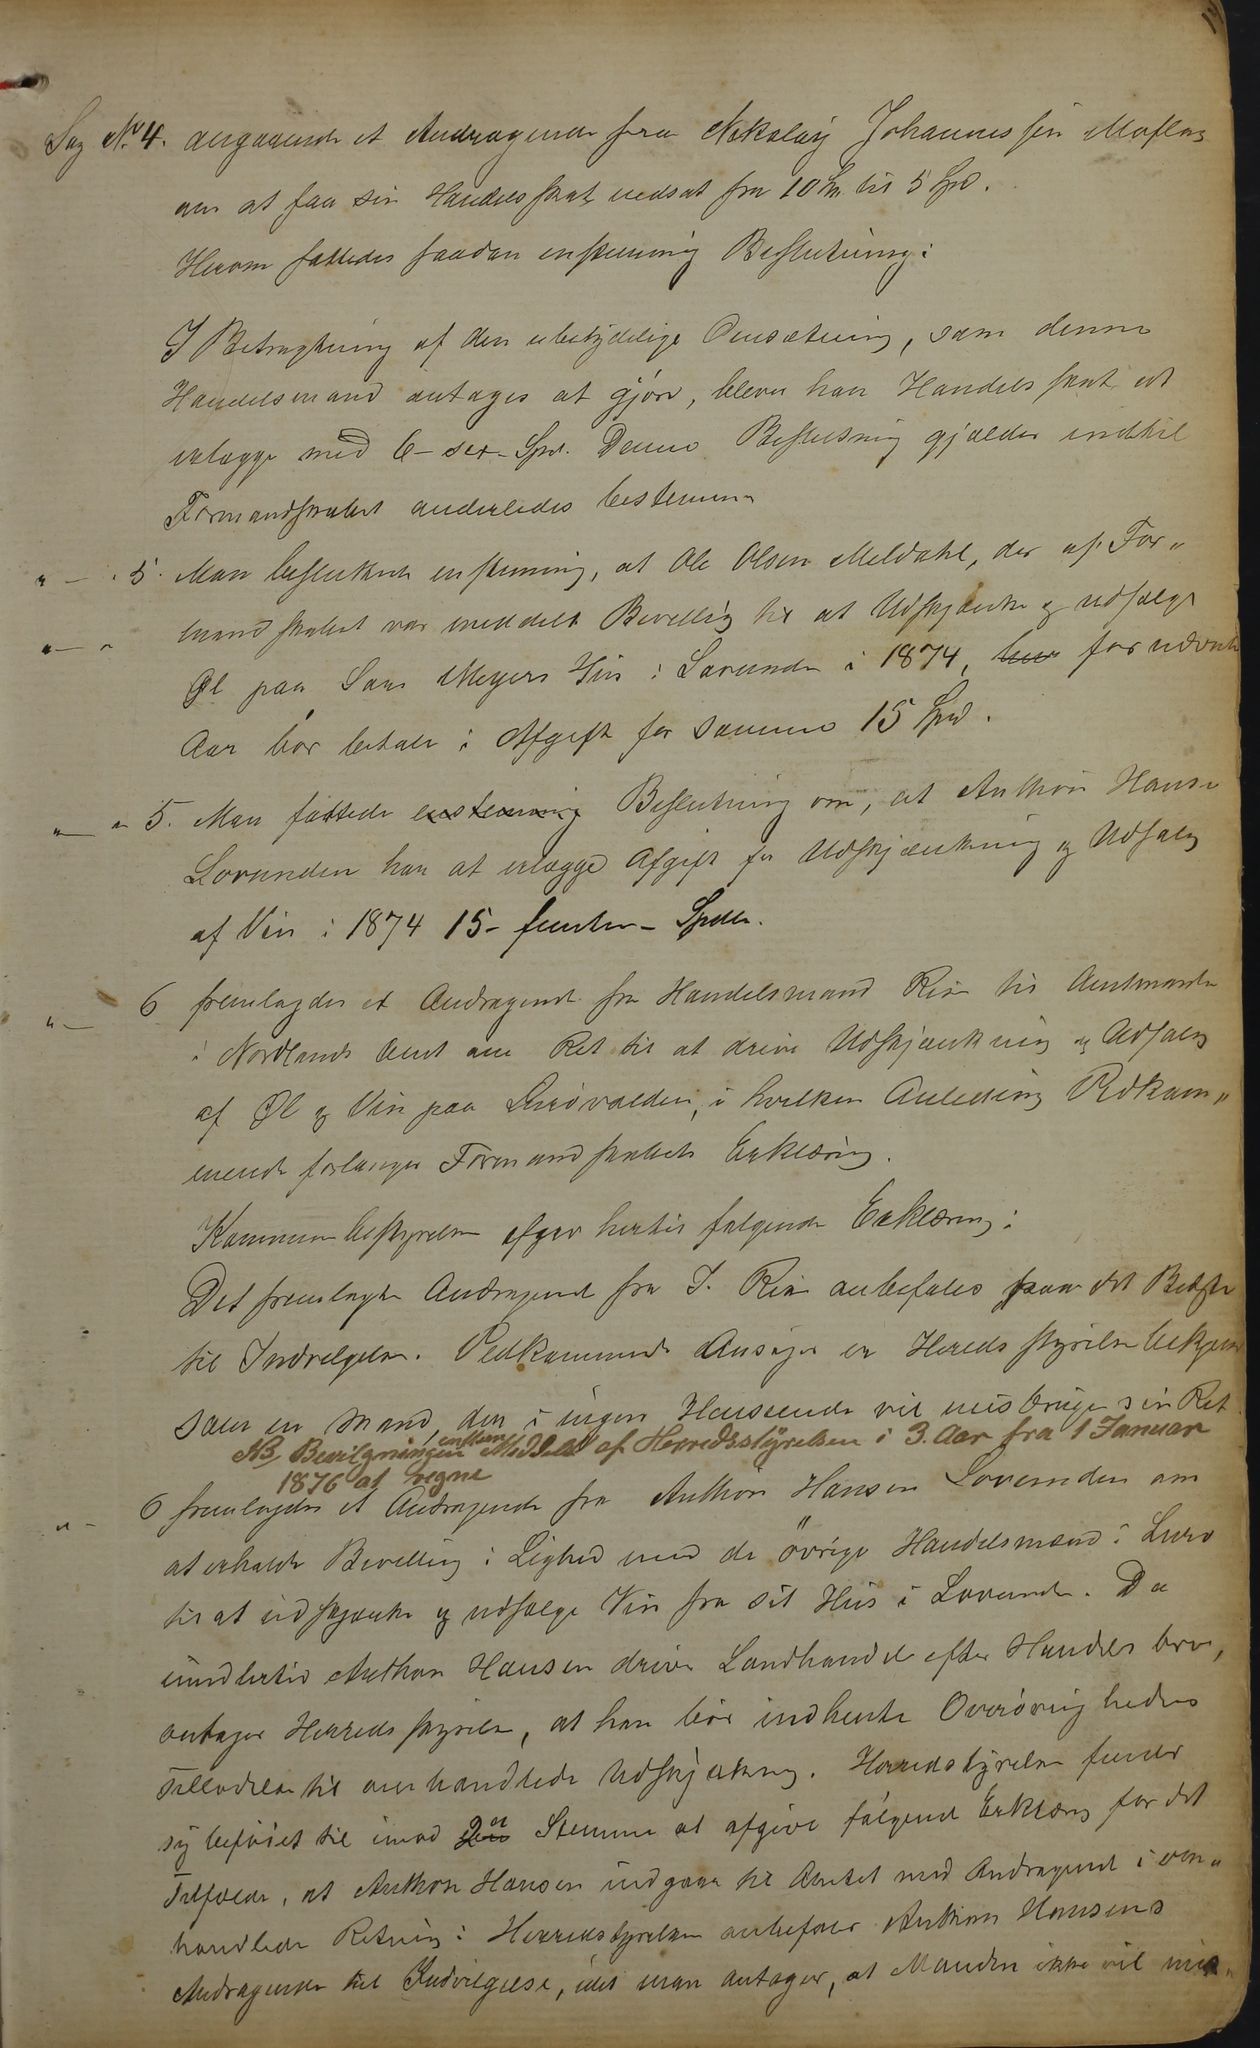 Sag No 4. angaaende et Andragende fra Nikolay Johannessen
om at faa sin Handelsskat nedsat fra 10 Spd. til 5 Spd.
Herom fattedes saadan enstemmig Beslutning:
I Betragtning af den ubetydelige Omsætning, som denne
Handelsmand antages at gjøre, bliver han Handelsskat at
erlægge med 6 - sex - Spd. Denne Beslutning gjælder indtil
Formandskabet anderledes bestemmer
" — " 5. Man besluttede enstemmig, at Ole Olsen Meldahl, der af For„
" — " mandskabet var meddelt Bevilling til at Udskjænke og udsælge
Øl paa Meyers Hus i Lovunden i 1874, for nævnte
Aar bør betale i Afgift for samme 15 Spd.
" — " 5. Man fattede enstemmig Beslutning om, at Anthon Hansen
Lovunden har at erlægge Afgift for Udskjænkning og Udsalg
af Vin i 1874 15 - femten - Spdlr.
" — 6 fremlagdes et Andragende fra Handelsmand til Amtmanden
i Nordlands Amt om Ret til at drive Udskjænkning og Udsalg
af Øl og Vin paa Lurøvalden, i hvilken Anledning Vedkom„
mende forlanger Formandskabets Erklæring.
Kommunebestyrelsen afgav hertil følgende Erklæring:
Det fremlagte Andragende fra anbefales paa det Bedste
til Indvilgelse. Vedkommende Ansøger er Heredsstyrelsen bekjendt
som en Mand, der i ingen Henseende vil misbruge sin Ret
NB Bevilgningen Meddelt af Herredsstyrelsen i 3. Aar fra 1 Januar
1876 at regne
" — 6 fremlagdes et Andragende fra Anthon Hansen Lovunden om
at erholde Bevilling i Lighed med de øvrige Handelsmænd i Lurø
til at udskjænke og udsælge Vin fra sit Hus i Lovunden. Da
imidlertid Anthon Hansen driver Landhandel efter Handelslov,
antager Herredsstyrelsen, at han bør indhente Overøvrighedens
Tilladelse til omhandlede Udskjænkning. Herredsstyrelsen finder
sig beføiet til imod Stemme at afgive følgende Erklæring for det
Tilfælde, at Anthon Hansen indgaar til Amtet med Andragende i om„
handlede Retning: Herredsstyrelsen anbefaler Anthon Hansens
Andragende til Indvilgelse, idet man antager, at Manden ikke vil mis„